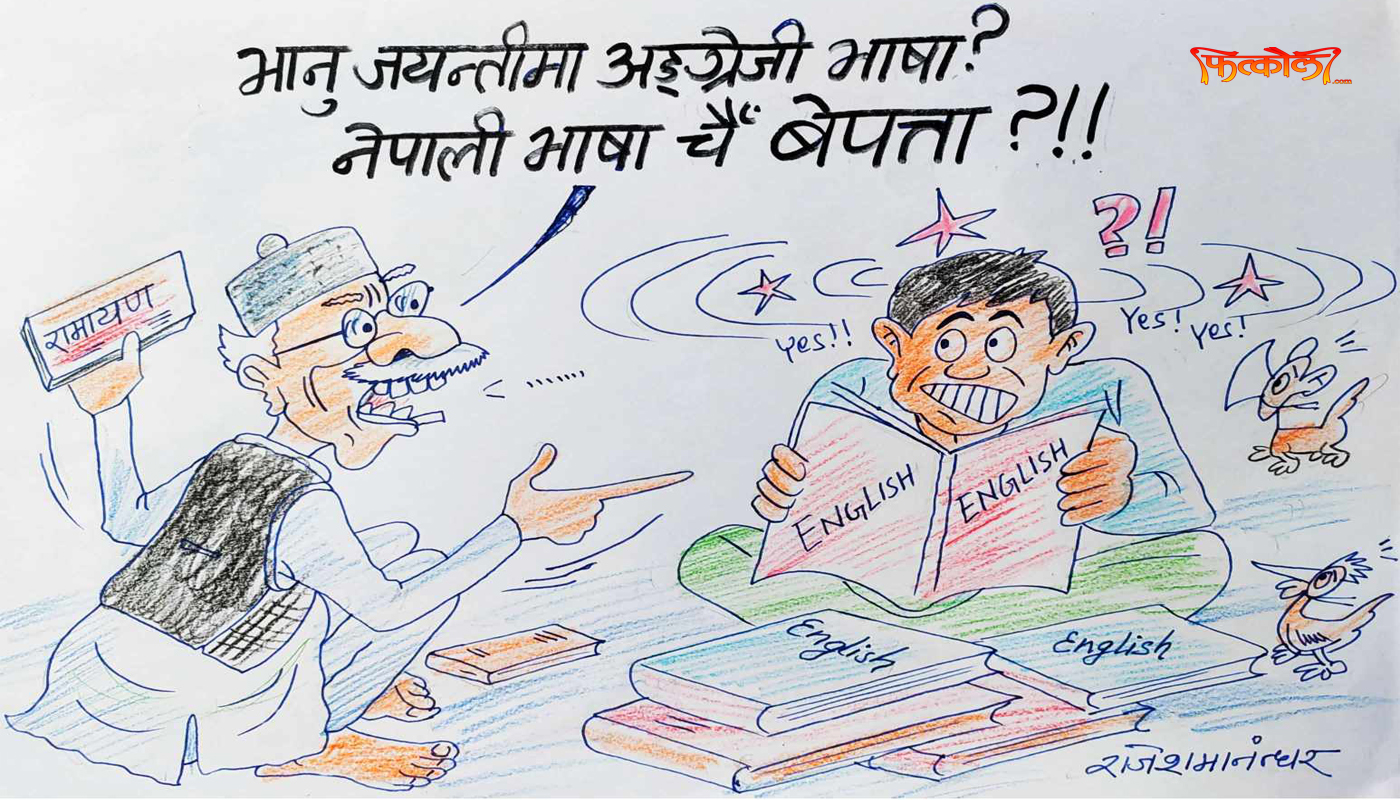 भानु जयन्तीमा अङ्ग्रेजी भाषा?
नेपाली भाषा चैँ बेपत्ता ?!!
फित्कौली.com
?!
रामायण
Yes!!
Yes! Yes!
ENGLISH ENGLISH
English
English
राजेश मानन्धर